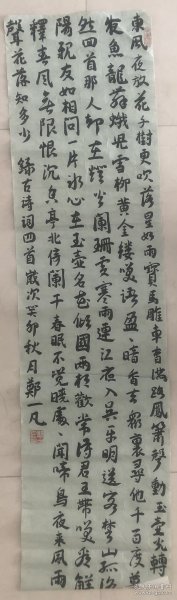 東風夜放花千樹更吹落星如雨寶馬雕車香滿路鳳簫聲動玉壺光轉
一夜魚龍舞蛾兒雪柳黃金縷笑語盈盈暗香去眾裏尋他千百度驀
然回首那人卻在燈火闌珊處寒雨連江夜入吳平明送客楚山孤洛
陽親友如相問一片冰心在玉壺名花傾國兩相歡常得君王帶笑看解
釋春風無限恨沉香亭北倚闌干春眠不覺曉處處聞啼鳥夜來風雨
聲花落知多少 錄古詩詞四首歲次癸卯秋月鄭一凡